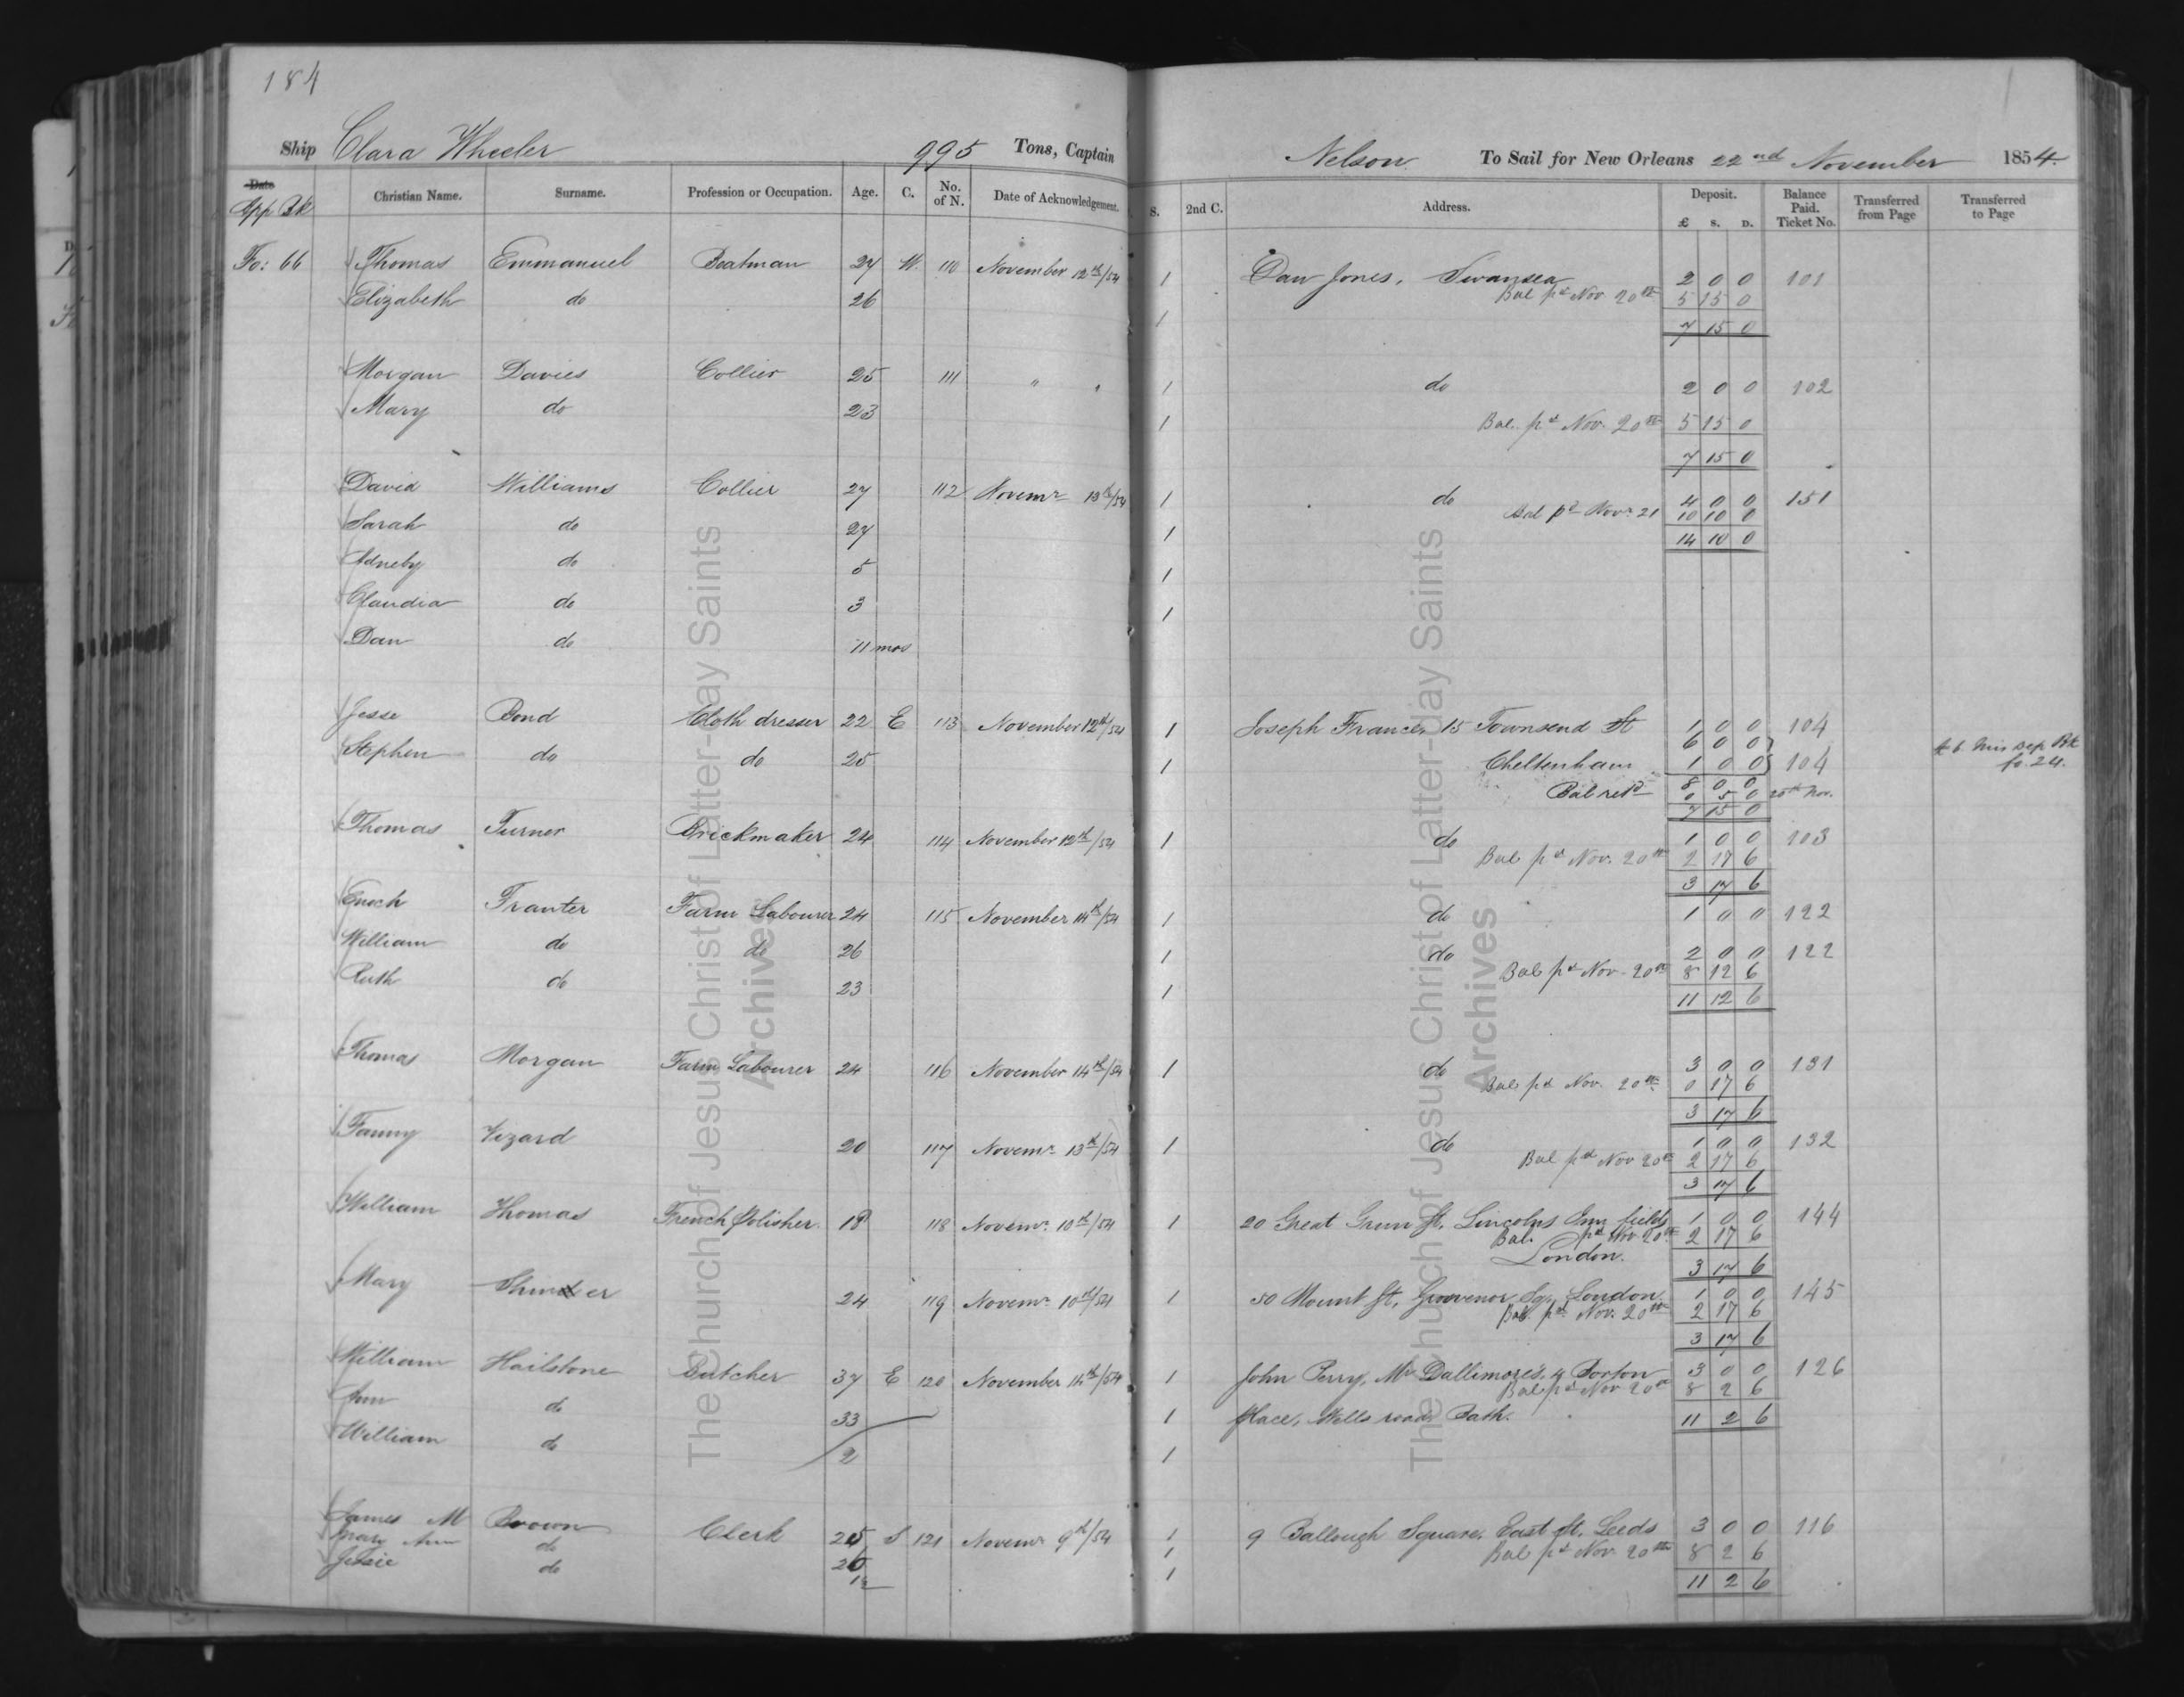 184
Ship Clara Wheeler 995 Tons, Captain Nelson To Sail for New Orleans 22nd November 1854.
Date Christian Name. Surname. Profession or Occupation. Age. C. No. of N. Date of Acknowledgement. S. 2nd C. Address. Deposit. £ S. D. Balance Paid. Ticket No. Transferred from Page Transferred to Page
App Bk
Fo: 66 Thomas Emmanuel Boatman 27 W. 110 November 12th/54 1 Dan Jones, Swansea 2 0 0 101
Elizabeth do 26 1 Bal pd Nov 20th 5 15 0
7 15 0
Morgan Davies Collier 25 111 " " 1 do 2 0 0 102
Mary do 23 1 Bal. pd Nov. 20th 5 15 0
7 15 0
David Williams Collier 27 112 Novemr 13th/54 1 do 4 0 0 151
Sarah do 27 1 Bal pd Novr 21 10 10 0
14 10 0
do 5 1
Claudia do 3 1
Dan do 11 mos
Jesse Bond Cloth dresser 22 E 113 November 12th/54 1 Joseph France, 15 Townsend St 1 0 0 104
6 0 0
Stephen do do 25 1 Cheltenham 1 0 0 104
8 0 0
Bal retd 0 5 0 20th Nov.
7 15 0
Thomas Turner Brickmaker 24 114 November 12th/54 1 do 1 0 0 103
Bal pd Nov. 20th 2 17 6
3 17 6
Enoch Tranter Farm Labourer 24 115 November 14th/54 1 do 1 0 0 122
William do do 26 1 do 2 0 0 122
Ruth do 23 1 Bal pd Nov. 20th 8 12 6
11 12 6
Thomas Morgan Farm Labourer 24 116 November 14th/54 1 do 3 0 0 131
Bal pd Nov. 20th 0 17 6
3 17 6
Fanny Vizard 20 117 Novemr 13th/54 1 do 1 0 0 132
Bal pd Nov 20th 2 17 6
3 17 6
William Thomas French Polisher. 18 118 Novemr 10th/54 1 20 Great St, Lincolns Inn fields 1 0 0 144
Bal. pd Nov 20th 2 17 6
London. 3 17 6
Mary 24 119 Novemr 10th/54 1 50 Mount St, Grosvenor Sq, London 1 0 0 145
Bal. pd Nov. 20th 2 17 6
3 17 6
William Hailstone Butcher 37 E 120 November 14th/54 1 John Perry, Mr Dallimore's, 4 3 0 0 126
Bal pd Nov 20th 8 2 6
Ann do 33 1 place, Wells road Bath. 11 2 6
William do 2 1
James M Brown Clerk 25 S 121 Novemr 9th/54 1 9 Square, East St, Leeds 3 0 0 116
Mary Ann do 26 1 Bal pd Nov 20th 8 2 6
Jessie do 1 11 2 6
The Church of Jesus Christ of Latter-day Saints
Archives
The Church of Jesus Christ of Latter-day Saints
Archives